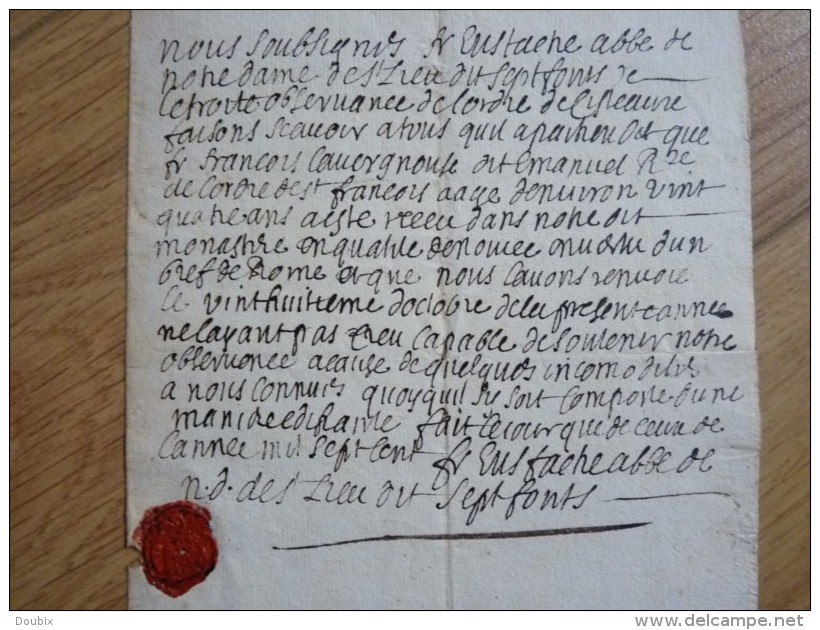 nous soubsignés fr Eustache abbé de
notre dame de st Lieu dit septfonts de
letroite observance de lordre de cisteaux
faisons scavoir a tous quil apartiendra que
fr francois dit Emanuel Rre
de lordre de st francois aagé denviron vint
quatre ans a esté receu dans notre dit
monastere en qualité de novice en vertu dun
bref de Rome et que nous lavons renvoié
le vinthuitieme doctobre de la presente année
ne layant pas creu capable de soutenir notre
observance a cause de quelques incomodités
a nous connues quoyquil sy soit comporté dune
maniere edifiante fait ce jour que dessus de
lannée mil sept cent fr Eustache abbé de
n.d. de st Lieu dit Septfonts
Doubix
www.delcampe.net